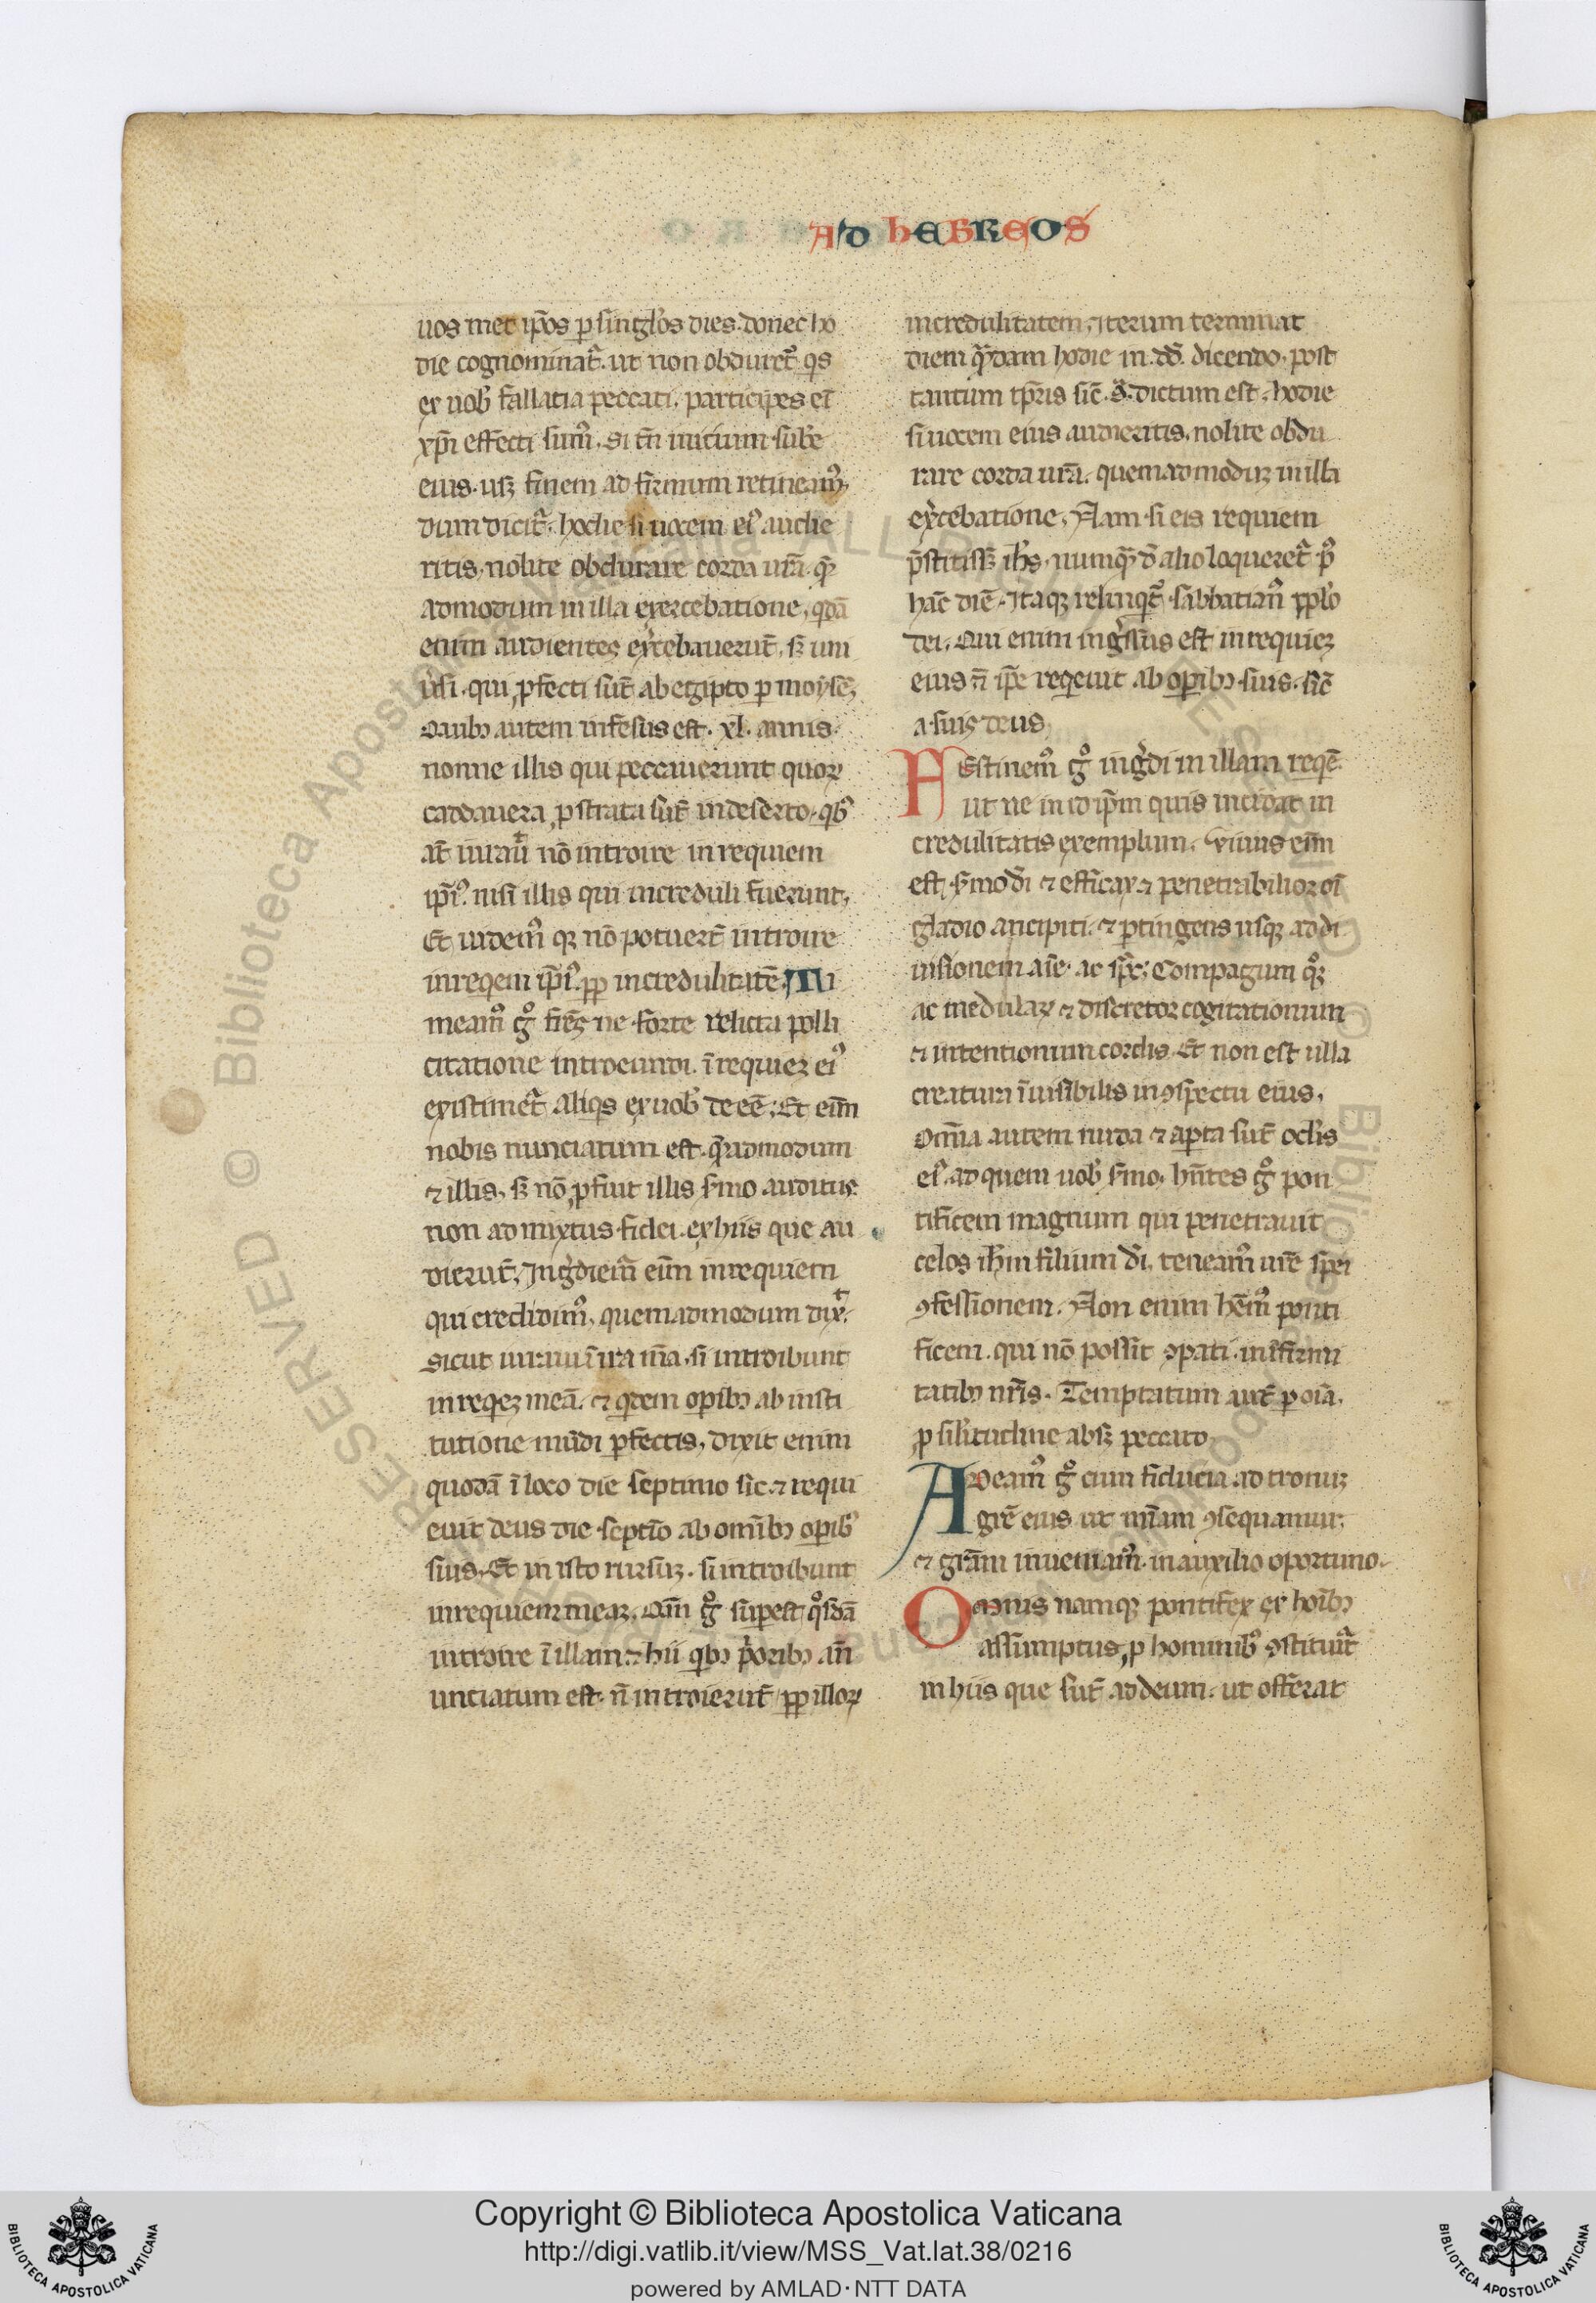 AD HEBREOS
uos met ip̄os p singl'os dies. donec ho
die cognominat᷑. ut non obduret᷑ q̄s
ex uob' fallatia peccati. participes eī
xp̄i effecti sum᷒. si tn̄ initium sub'e
eius. usq; finem ad firmum retineam᷒.
dum dicit᷑. hodie si uocem ei᷒ audie
ritis. nolite obdurare corda ur̄a. q̄
admodum in illa exercebatione. qdā
enim audientes exacebauerūt. s; uni
u'si. qui ꝓfecti sūt ab egipto p moysē.
Quib; autem infensus est. xl. annis.
nonne illis qui peccauerunt quoꝝ
caddauera ꝓstrata sūt in deserto. qb᷒
aūt iurauit nō introire in requiem
ip̄i᷒. nisi illis qui increduli fuerunt.
Et uidem᷒ q; nō potuerūt introire
in reqem ip̄i᷒. ꝓp incredulitatē. Ti
meam᷒ g° fr̄es ne forte relicta polli
citatione introeundi. ī requiez ei᷒
existimet᷑ aliqs ex uob' deeē. Et enī
nobis nunciatum est. q̄admodum
⁊ illis. s; nō ꝓfuit illis s'mo auditus
non admixtus fidei. ex hiis que au
dierūt. Ingr̄diem᷒ enī in requiem
qui credidim᷒. quemadmodum dixit.
sicut iuraui ī ira m̄a. si introibunt
in reqez meā. ⁊ qdem opib; ab insti
tutione mūdi pfectis. dixit enim
quodā ī loco die septimo sic. ⁊ requi
euit deus die septīo ab omīb; opib'
suis. Et in isto rursuz. si introibunt
in requiem meaz. Qm̄ g° sup̄est q°sdā
introire ī illam. ⁊ hii qb; p'orib; an̄
unciatum est. n̄ introierūt ꝓp illoꝝ
incredulitatem. Iterum terminat
diem q̄dam hodie in dd̄. dicendo. post
tantum tp̄ris sic̄. s̄. dictum est. hodie
si uocem eius audieritis. nolite obdu
rare corda ur̄a. quemadmoduz in illa
exacebatione. Nam si eis requiem
p̄stitiss; ih's. numq̄ d' alio loqueret᷑ p᷒
hāc diē. Itaq; relinqt᷑ sabbatism᷒ ppl'o
dei. Qui enim ingr̄ssus est in requiez
eius n̄ ip̄e reqeuit ab opib; suis. sic̄
a suis deus.
FEstinem᷒ g° ingr̄di in illam reqē.
ut ne in id ip̄m quis incidat in
credulitatis exemplum. Viuus enī
est s'mo dī ⁊ efficax. ⁊ penetrabilior oī
gladio ancipiti. ⁊ ptingens usq; ad di
uisionem aīe. ac sp̄c. Compagum q°z
ac medulaꝝ ⁊ discretor cogitationum
⁊ intentionum cordis. Et non est ulla
creatura īuisibilis in ꝯspectu eius.
Omīa autem nuda ⁊ apta sūt ocl'is
ei᷒. ad quem uob' s'mo. hn̄tes g° pon
tificem magnum qui penetrauit
celos ih̄m filium dī. teneam᷒ nr̄e spei
ꝯfessionem. Non enim hēm᷒ ponti
ficem. qui nō possit ꝯpati. infirmi
tatib; nr̄is. Temptatum aūt p oīa.
ꝓ sil'itudine absq; peccato.
ADeam᷒ g° cum fiducia ad tronuz
gr̄e eius ut mīam ꝯsequamur.
⁊ gr̄am inueniam᷒. in auxilio oportuno.
Omnis namq; pontifex ex hoīb;
assumptus, ꝓ hominib᷒ ꝯstituit᷑
in hiis que sūt ad deum. ut offerat
Copyright © Biblioteca Apostolica Vaticana
http://digi.vatlib.it/view/MSS_Vat.lat.38/0216
powered by AMLAD·NTT DATA
BIBLIOTECA APOSTOLICA VATICANA
BIBLIOTECA APOSTOLICA VATICANA